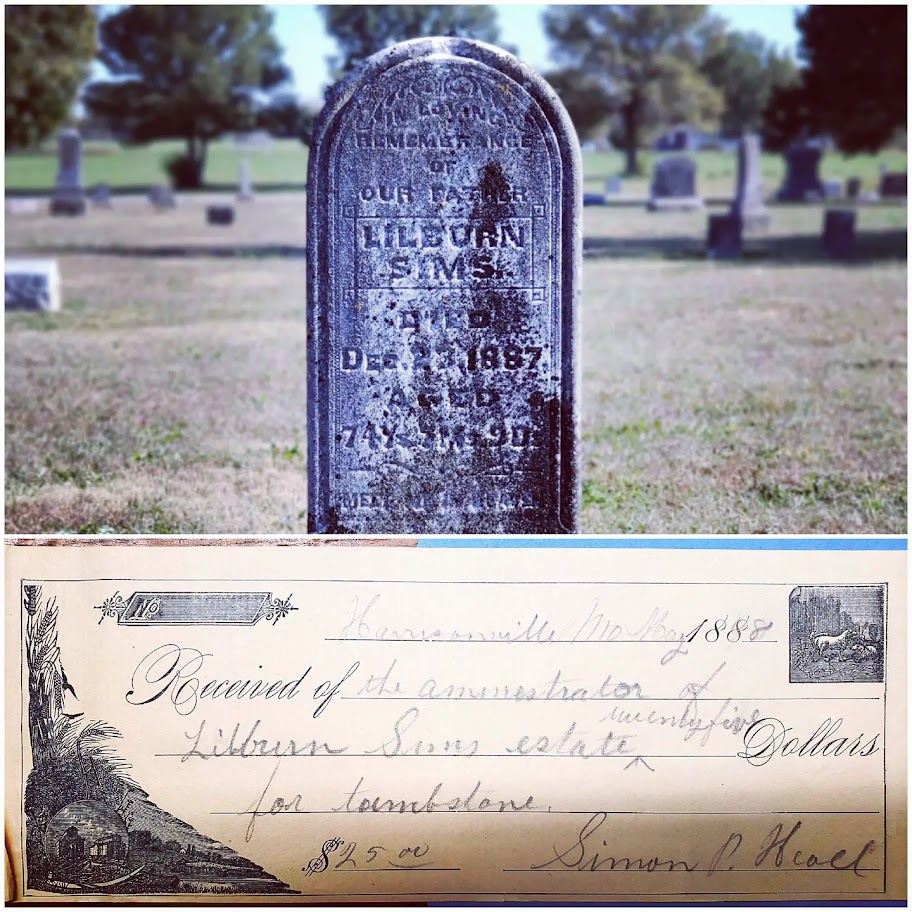 IN LOVING
REMEMBRANCE
OF
OUR FATHER
LILBURN
SIMS.
DIED
DEC. 23, 1887
AGED
No
Harrisonville Mo May 1888
Received of the aministrator of
twentyfive
Lilburn Sims estate ^ Dollars
for tombstone.
$25.00 Simon P.